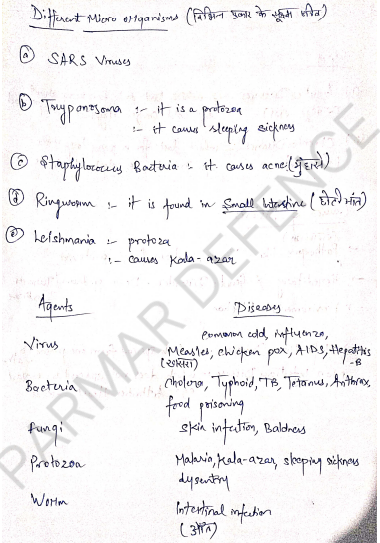 Different Micro organisms (विभिन्न प्रकार के सूक्ष्म जीव)
(a) SARS Viruses
(b) Tryponosoma :- it is a protozoa
:- it causes sleeping sickness
(c) Staphylococcus Bacteria :- it causes acne (मुँहासे)
(d) Ringworm :- it is found in Small Intestine (छोटी आंत)
(e) Leishmania :- protoza
:- causes Kala-azar
Agents Diseases
Virus common cold, influenza,
Measles, chicken pox, AIDS, Hepatitis-B
(खसरा)
Bacteria Cholera, Typhoid, TB, Tetanus, Anthrax,
food poisoning
Fungi Skin infection, Baldness
Protozoa Malaria, Kala-azar, sleeping sickness
dysentry
Worm Intestinal infection
(आँत)
PARMAR DEFENCE